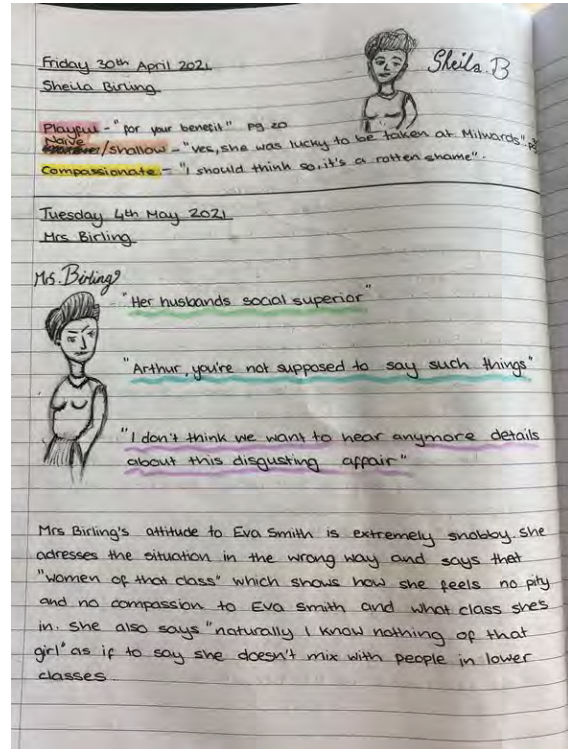 Friday 30th April 2021
Sheila Birling
Sheila B
Playful - "for your benefit" pg 20
Naive
/shallow - "yes, she was lucky to be taken at Milwards".
Compassionate - "I should think so, it's a rotten shame".
Tuesday 4th May 2021
Mrs Birling
Mrs. Birling
"Her husbands social superior"
"Arthur, you're not supposed to say such things"
"I don't think we want to hear anymore details
about this disgusting affair"
Mrs Birling's attitude to Eva Smith is extremely snobby. she
adresses the situation in the wrong way and says that
"women of that class" which shows how she feels no pity
and no compassion to Eva Smith and what class shes
in. she also says "naturally I know nothing of that
girl" as if to say she doesn't mix with people in lower
classes